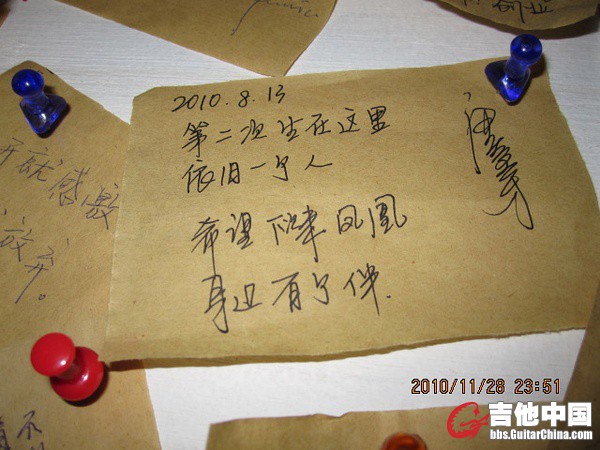 2010.8.13
第二次坐在这里
依旧一个人
希望下次来凤凰
身边有个伴.
开就感激
放弃。
2010/11/28 23:51
吉他中国
bbs.GuitarChina.com